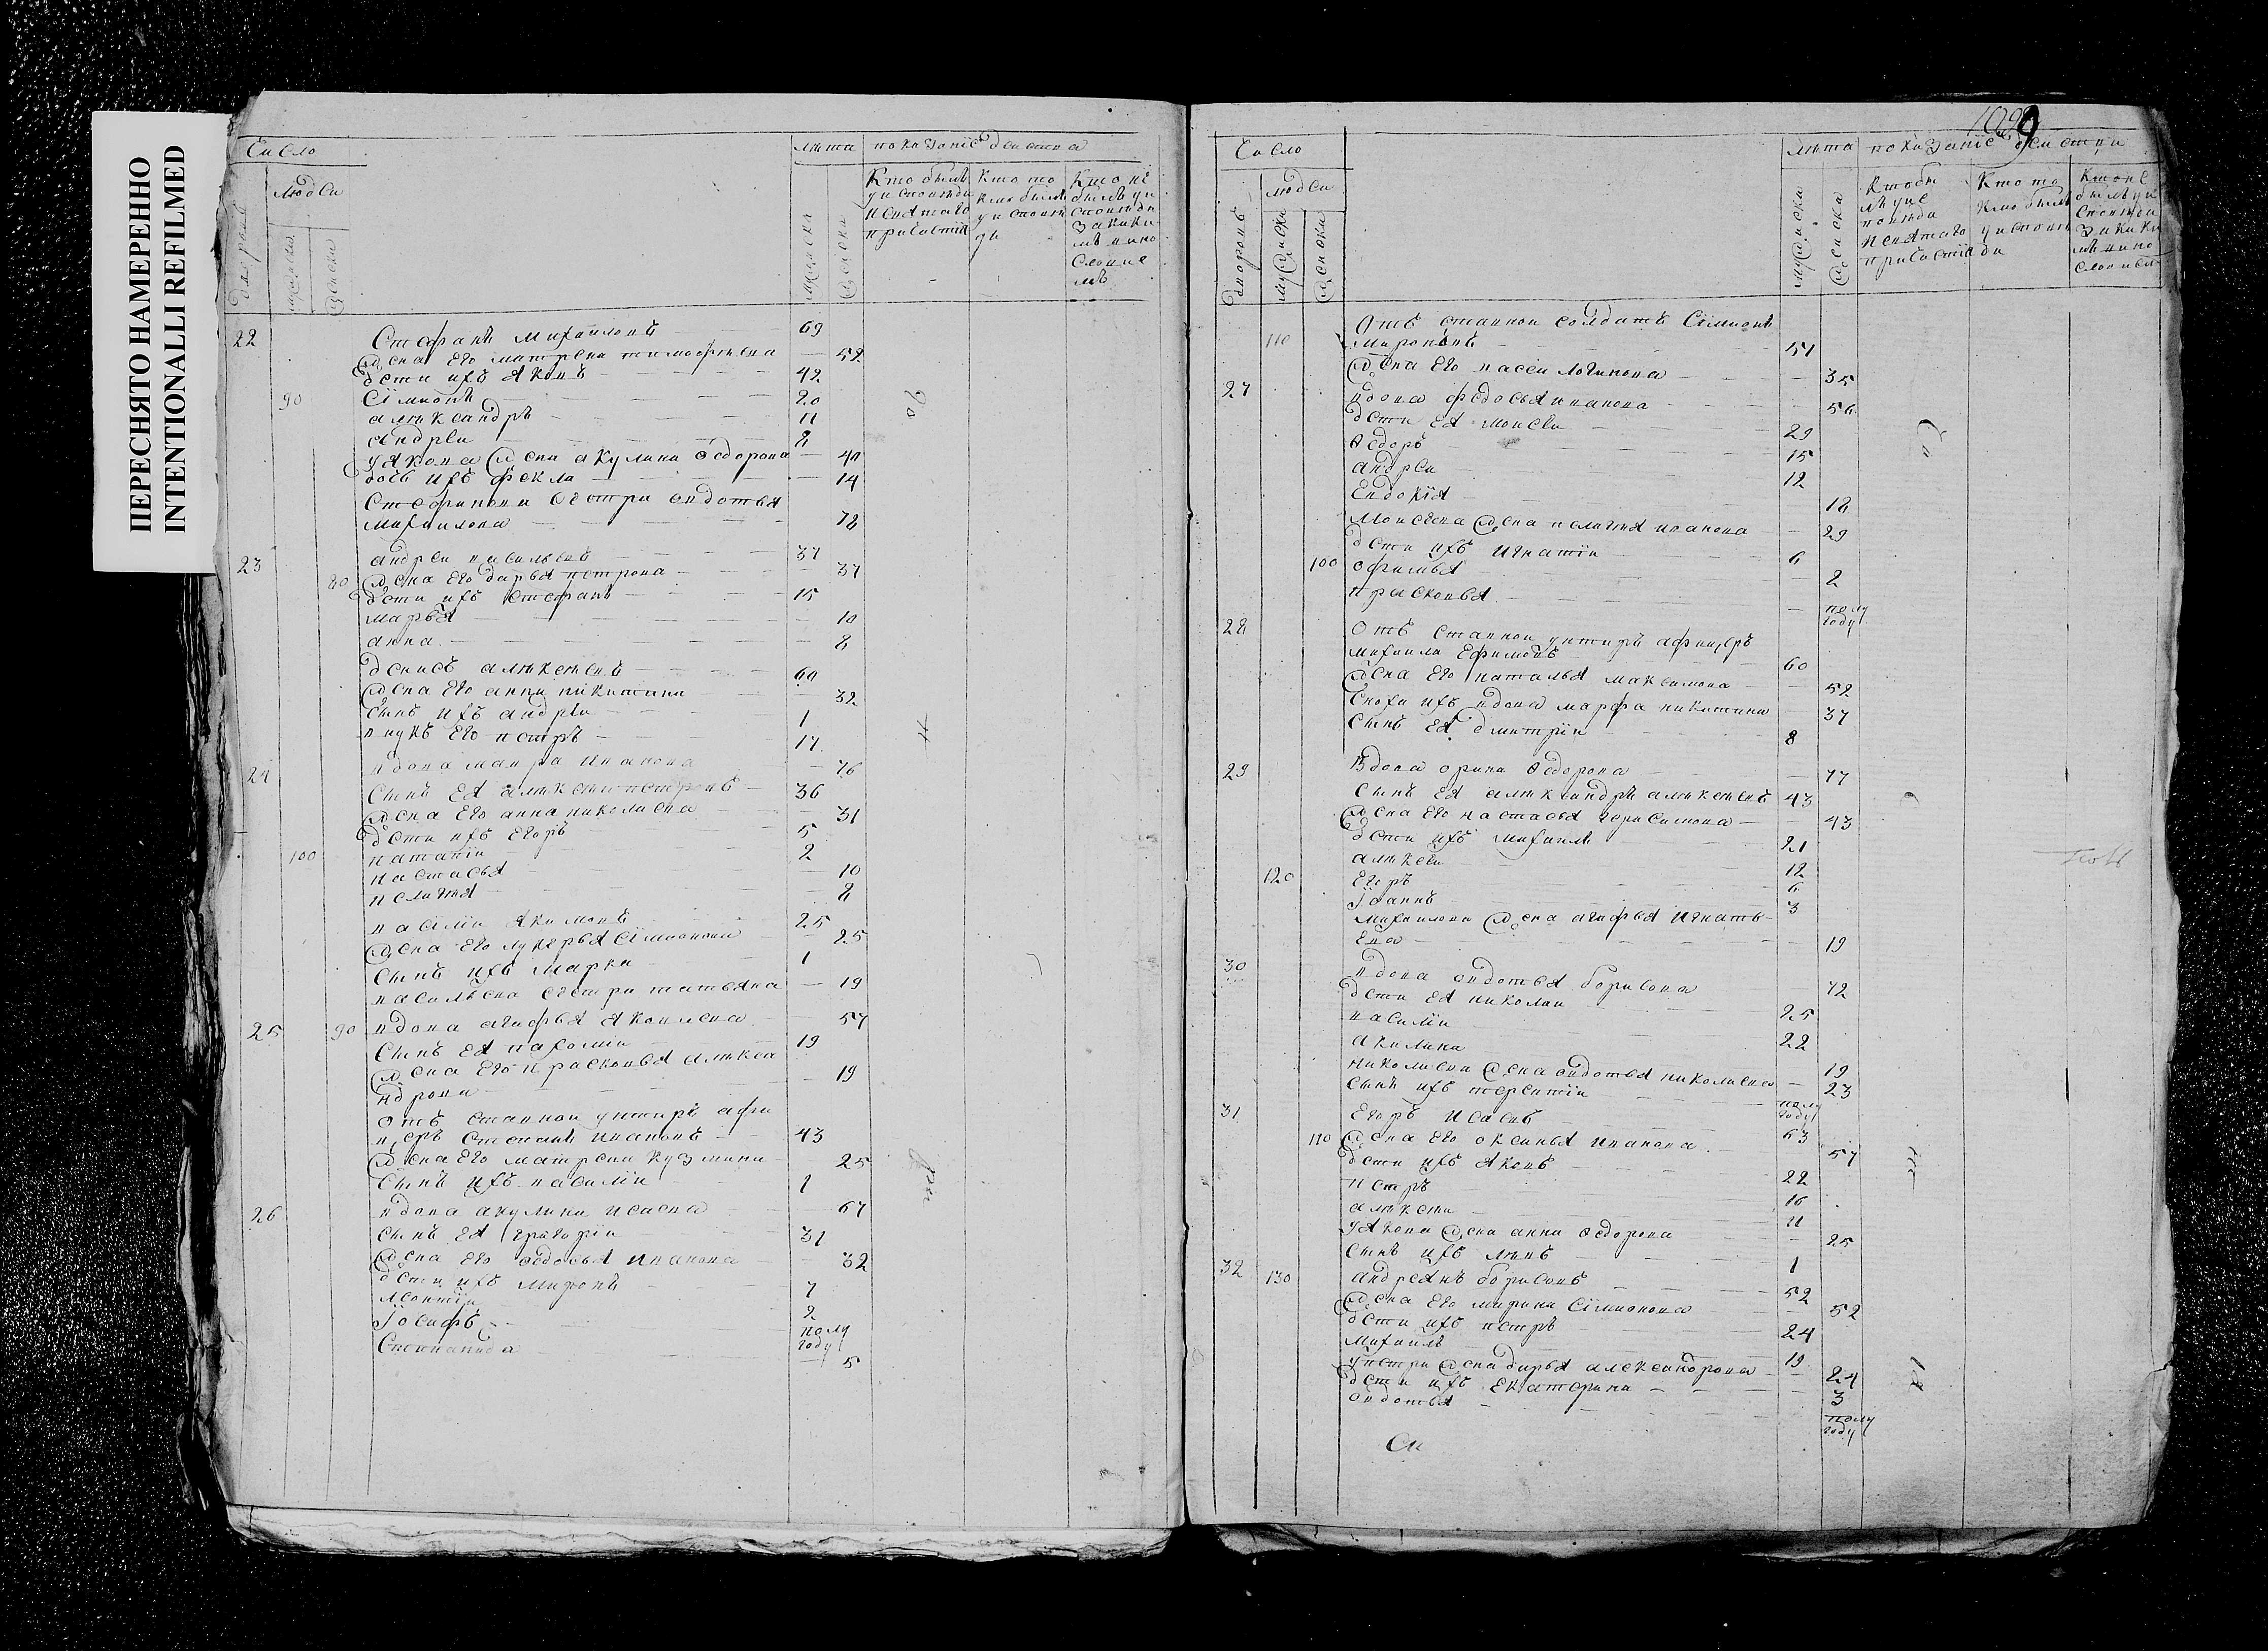 ПЕРЕСНЯТО НАМЕРЕННО
INTENTIONALLI REFILMED
Число
людеи
дворовъ
мужеска
женска
лѣта
показаніе действа
мужеска
женска
Кто былъ
у исповѣди
и святаго
причастія
Кто то
кмо былъ
у исповѣ
ди
Кто не
былъ у и
сповѣди
за каки
мъ вино
словие
мъ
22 Стефанъ Михаиловъ 69
жена Его матрена тимофѣева 52
дети ихъ Яковъ 42
90 Сімионъ 20
алѣксандръ 11
андреи 8
уякова жена акулина Ѳедорова 40
дочь ихъ фекла 14
Стефанова сестра овдотья
михаилова 78
23 андреи васильевъ 37
80 жена Его дарья петрова 37
дети ихъ Стефанъ 15
марья 10
анна 8
денисъ алѣксѣевъ 60
жена Его анна никитина 32
сынъ ихъ андреи 1
внукъ Его петръ 17
24 вдова мавра иванова 76
сынъ Ея алѣксѣи петровъ 36
жена Его анна николаева 31
дети ихъ Егоръ 5
100 патапіи 2
настасья 10
пелагѣя 8
васіліи якимовъ 25
жена Его лукерья Сімионова 25
сынъ ихъ марко 1
васильева сестра татьяна 19
25 90 вдова агафья яковлева 57
сынъ Ея пахоміи 19
жена Его прасковья алѣкса
ндрова 19
отъ ставнои унтиръ афи
церъ Степанъ ивановъ 43
жена Его матрена кузмина 25
сынъ ихъ василіи 1
26 вдова акулина исаева 67
сынъ Ея григоріи 31
жена Его ѳедосья иванова 32
дети ихъ миронъ 7
леонтіи 2
Іосифъ полу
году
Степанида 5
109
Число
людеи
дворовъ
мужеска
женска
лѣта
показаніе действа
мужеска
женска
Кто бы
лъ у ис
повѣди
и святаго
причастія
Кто то
кмо былъ
у исповѣ
ди
Кто не
былъ у и
сповѣди
за каки
мъ вино
словием
110 Отъ ставнои солдатъ Сімионъ
мироновъ 51
жена Его васса логинова 35
27 вдова федосья иванова 56
дети Ея моисеи 29
Ѳедоръ 15
андреи 12
Евдокія 18
моисеева жена пелагѣя иванова 29
дети ихъ игнатіи 6
100 офимья 2
прасковья полу
году
28 Отъ ставнои унтиръ афицеръ
михаила Ефимовъ 60
жена Его наталья максимова 52
сноха ихъ вдова марфа никитина 37
сынъ Ея дмитріи 8
29 Вдова орина Ѳедорова 77
сынъ Ея алѣксандръ алѣксѣевъ 43
жена Его настасья герасимова 43
дети ихъ михаилъ 21
алѣксѣи 12
120 Егоръ 6
Іоаннъ 3
михаилова жена агафья игнать
Ева 19
30 вдова овдотья борисова 72
дети Ея николаи 25
василіи 22
акилина 19
николаева жена овдотья николаева 23
сынъ ихъ терентіи полу
году
31 Егоръ исаевъ 63
110 жена Его оксинья иванова 57
дети ихъ яковъ 22
петръ 16
алѣксѣи 11
уякова жена анна Ѳедорова 25
сынъ ихъ левъ 1
32 130 андреянъ борисовъ 52
жена Его марина Сімионова 52
дети ихъ петръ 24
михаилъ 19
упетра жена дарья александрова 24
дети ихъ Екатерина 3
овдотья полу
году